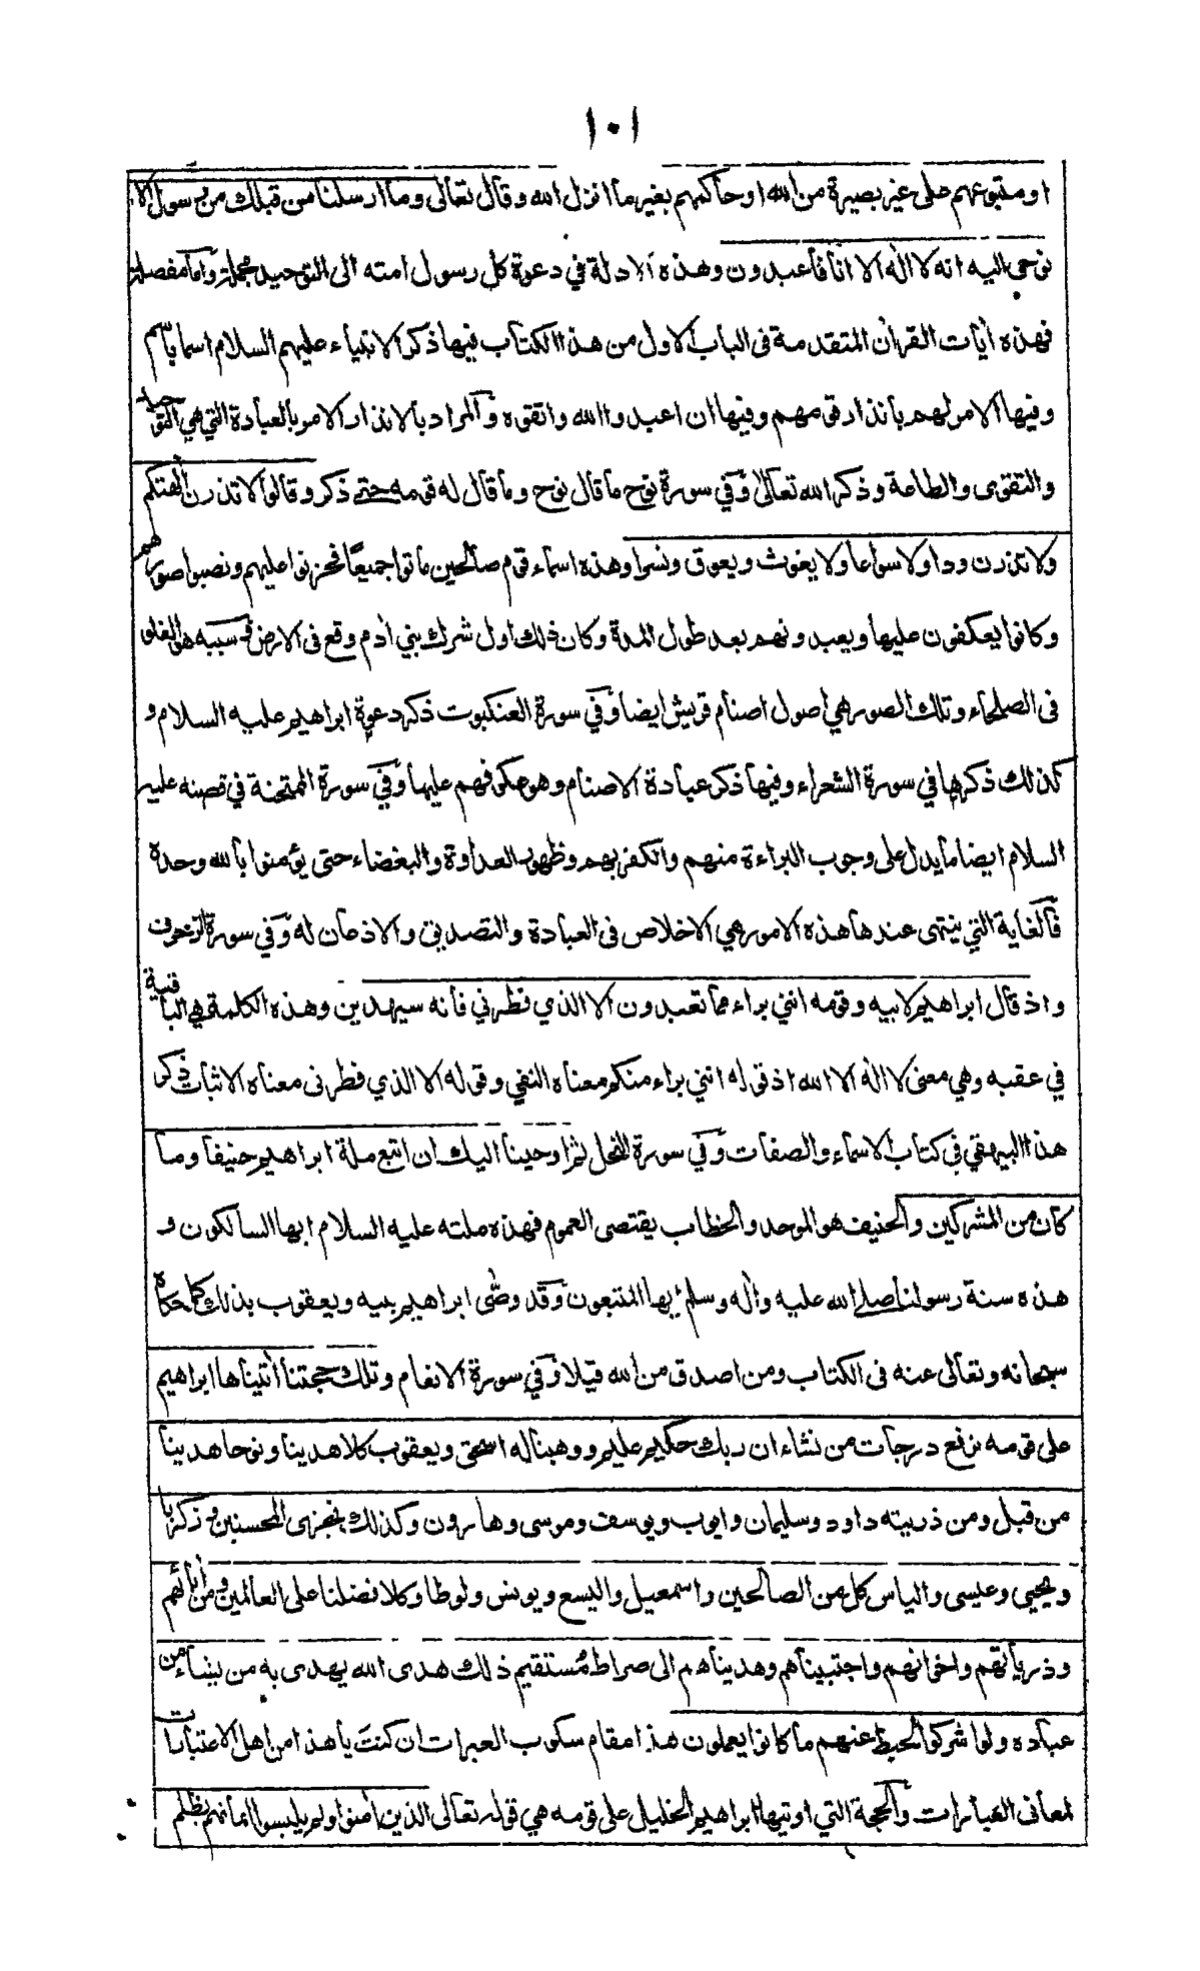 ١٠١
او متبوعهم على غير بصيرة من الله او حاكمهم بغير ما انزل الله وقال تعالى وما ارسلنا من قبلك من رسول الا
نوحي اليه انه لا اله الا انا فاعبدون وهذه الادلة في دعوة كل رسول امته الى التوحيد مجملة واما مفصلة
فهذه ايات القران المتقدمة فى الباب الاول من هذا الكتاب فيها ذكر الانبياء عليهم السلام اسما باسم
وفيها الامر لهم بانذار قومهم وفيها ان اعبدوا الله واتقوه والمراد بالانذار الامر بالعبادة التي هي التوحيد
والتقوى والطاعة وذكر الله تعالى وفي سورة نوح ما قال نوح وما قال له قومه حتى ذكر وقالوا لا تذرن الهتكم
ولا تذرن ودا ولا سواعا ولا يغوث ويعوق ونسرا وهذه اسماء قوم صالحين ماتوا جميعًا فحزنوا عليهم ونصبوا صورهم
وكانوا يعكفون عليها ويعبدونهم بعد طول المدة وكان ذلك اول شرك بني ادم وقع فى الارض وسببه هو الغلو
فى الصلحاء وتلك الصور هي اصول اصنام قريش ايضا وفي سورة العنكبوت ذكر دعوة ابراهيم عليه السلام و
كذلك ذكرها في سورة الشعراء وفيها ذكر عبادة الاصنام وهو عكوفهم عليها وفي سورة الممتحنة في قصته عليه
السلام ايضا ما يدل على وجوب البراءة منهم والكفر بهم وظهور العداوة والبغضاء حتى يؤمنوا بالله وحده
فالغاية التي ينتهى عندها هذه الامور هي الاخلاص فى العبادة والتصديق والاذعان له وفي سورة الزخرف
واذ قال ابراهيم لابيه وقومه انني براء مما تعبدون الا الذي فطرني فانه سيهدين وهذه الكلمة هي الباقية
في عقبه وهي معنى لا اله الا الله اذ قوله انني براء منكم معناه النفي وقوله الا الذي فطرنى معناه الاثبات ذكر
هذا البيهقي في كتاب الاسماء والصفات وفي سورة النحل ثم اوحينا اليك ان اتبع ملة ابراهيم حنيفا وما
كان من المشركين والحنيف هو الموحد والخطاب يقتضى العموم فهذه ملته عليه السلام ايها السالكون و
هذه سنة رسولنا صلى الله عليه واله وسلم ايها المتبعون وقد وصّى ابراهيم بنيه ويعقوب بذلك كما حكاه
سبحانه وتعالى عنه فى الكتاب ومن اصدق من الله قيلا وفي سورة الانعام وتلك حجتنا اتيناها ابراهيم
على قومه نرفع درجات من نشاء ان ربك حكيم عليم ووهبنا له اسحق ويعقوب كلا هدينا ونوحا هدينا
من قبل ومن ذريته داود وسليمان وايوب ويوسف وموسى وهارون وكذلك نجزى المحسنين وزكريا
ويحيى وعيسى والياس كل من الصالحين واسمعيل واليسع ويونس ولوطا وكلا فضلنا على العالمين ومن ابائهم
وذرياتهم واخوانهم واجتبيناهم وهديناهم الى صراط مستقيم ذلك هدى الله يهدى به من يشاء من
عباده ولو اشركوا لحبط عنهم ما كانوا يعملون هذا مقام سكوب العبرات ان كنت يا هذا من اهل الاعتبارات
لمعانى العبارات والحجة التي اوتيها ابراهيم الخليل على قومه هي قوله تعالى الذين امنوا ولم يلبسوا ايمانهم بظلم